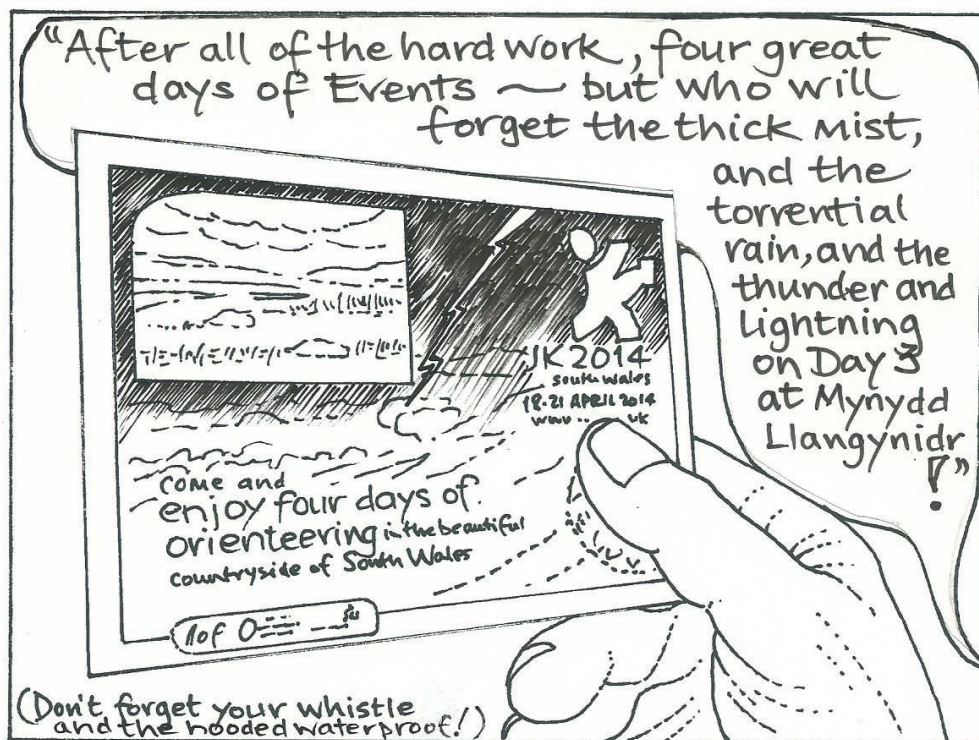 “After all of the hard work, four great
days of Events ~ but who will
forget the thick Mist,
and the
torrential
rain, and the
thunder and
Lightning
on Day 3
at Mynydd
Llangynidr
!”
JK 2014
south wales
18-21 APRIL 2014
www.. uk
come and
enjoy four days of
orienteering in the beautiful
countryside of South Wales
1 of 0
(Don't forget your whistle
and the hooded waterproof!)